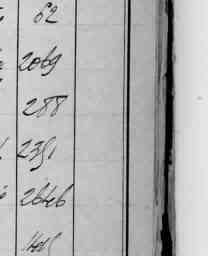 62
2069
288
2351
2646